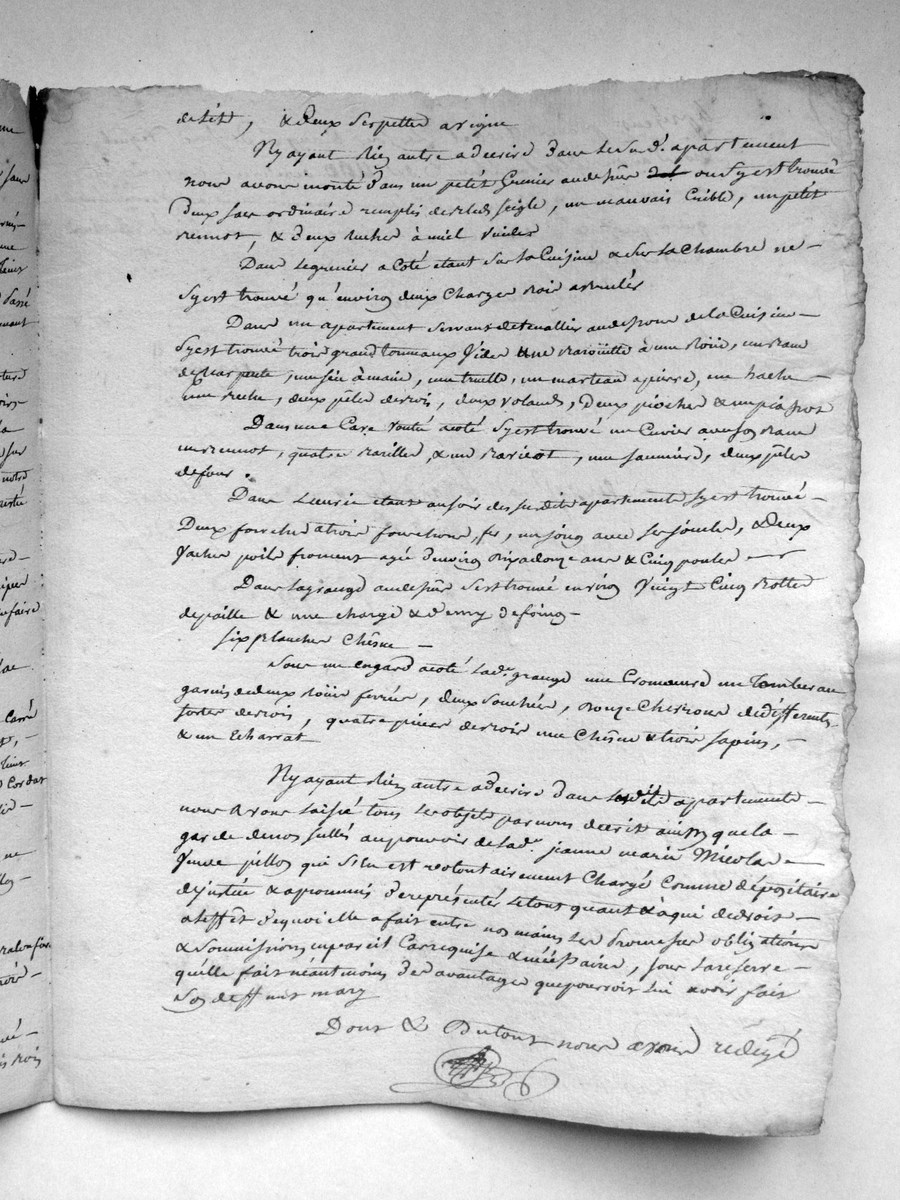 de lit, & deux serpettes a vigne
N'y ayant Rien autre a decrire dans le Su d.' apartement
nous avons monté dans un petit Grenier au dessus ou S'y est trouvé
deux sacs ordinaire remplis de bled seigle, un mauvais Crible, un petit
bennot, & deux Ruches à miel Vuides
Dans le grenier a Coté etant Sur la Cuisine & Sur la Chambre ne –
S'y est trouvé qu'environ deux Charges bois a bruler
Dans un apartement servant de tenallier au dessous de la Cuisine –
S'y est trouvé trois grand tonneaux Vides une barouëtte à une Roüe, un banc
de Charpente, une sie à main, une truelle, un marteau a pierre, une hache –
une beche, deux pêles de bois, deux volands, deux pioches & un piochot
Dans une Cave voutée a coté S'y est trouvé un Cuvier avec son banc
un bennot, quatre barilles, & un baricot, une saunière, deux pêles
de four.
Dans L'ecurie etant au soir des susdits apartements S'y est trouvé –
deux fourches a trois fourchons, fer, un joug avec ses joucles, & deux
Vaches poile froment agé d'environ dix a douze ans & Cinq poules –
Dans la grange au dessus S'est trouvé environ Vingt Cinq bottes
de paille & une charge & demy de foing –
six planches Chêne –
Sous un engard a coté la d.e grange une un Tombereau
garnis de deux Roües ferrées, deux , onze Chevrons de differentes
sortes de bois, quatre pieces de bois une Chêne & trois sapins, –
& un Echarrat
N'y ayant Rien autre a decrire dans les dits apartements –
nous avons laissé tous les objets par nous decrit ainsy que la –
garde de nos sellés au pouvoir de la d.e jeanne marie Nicolas –
Veuve pillon qui s'en est volontairement Chargé Comme dépositaire
de justice & a promis de représenter le tout quant & à qui de droit –
a l'effêt de quoi elle a fait entre nos mains les promesses obligations
& soumissions en pareil Cas requise & nécéssaire, sous la reserve –
qu'elle fait néantmoins des avantages que pourroit lui avoir fait
Son deffunt mary
Dont & Du tout nous avons redigé